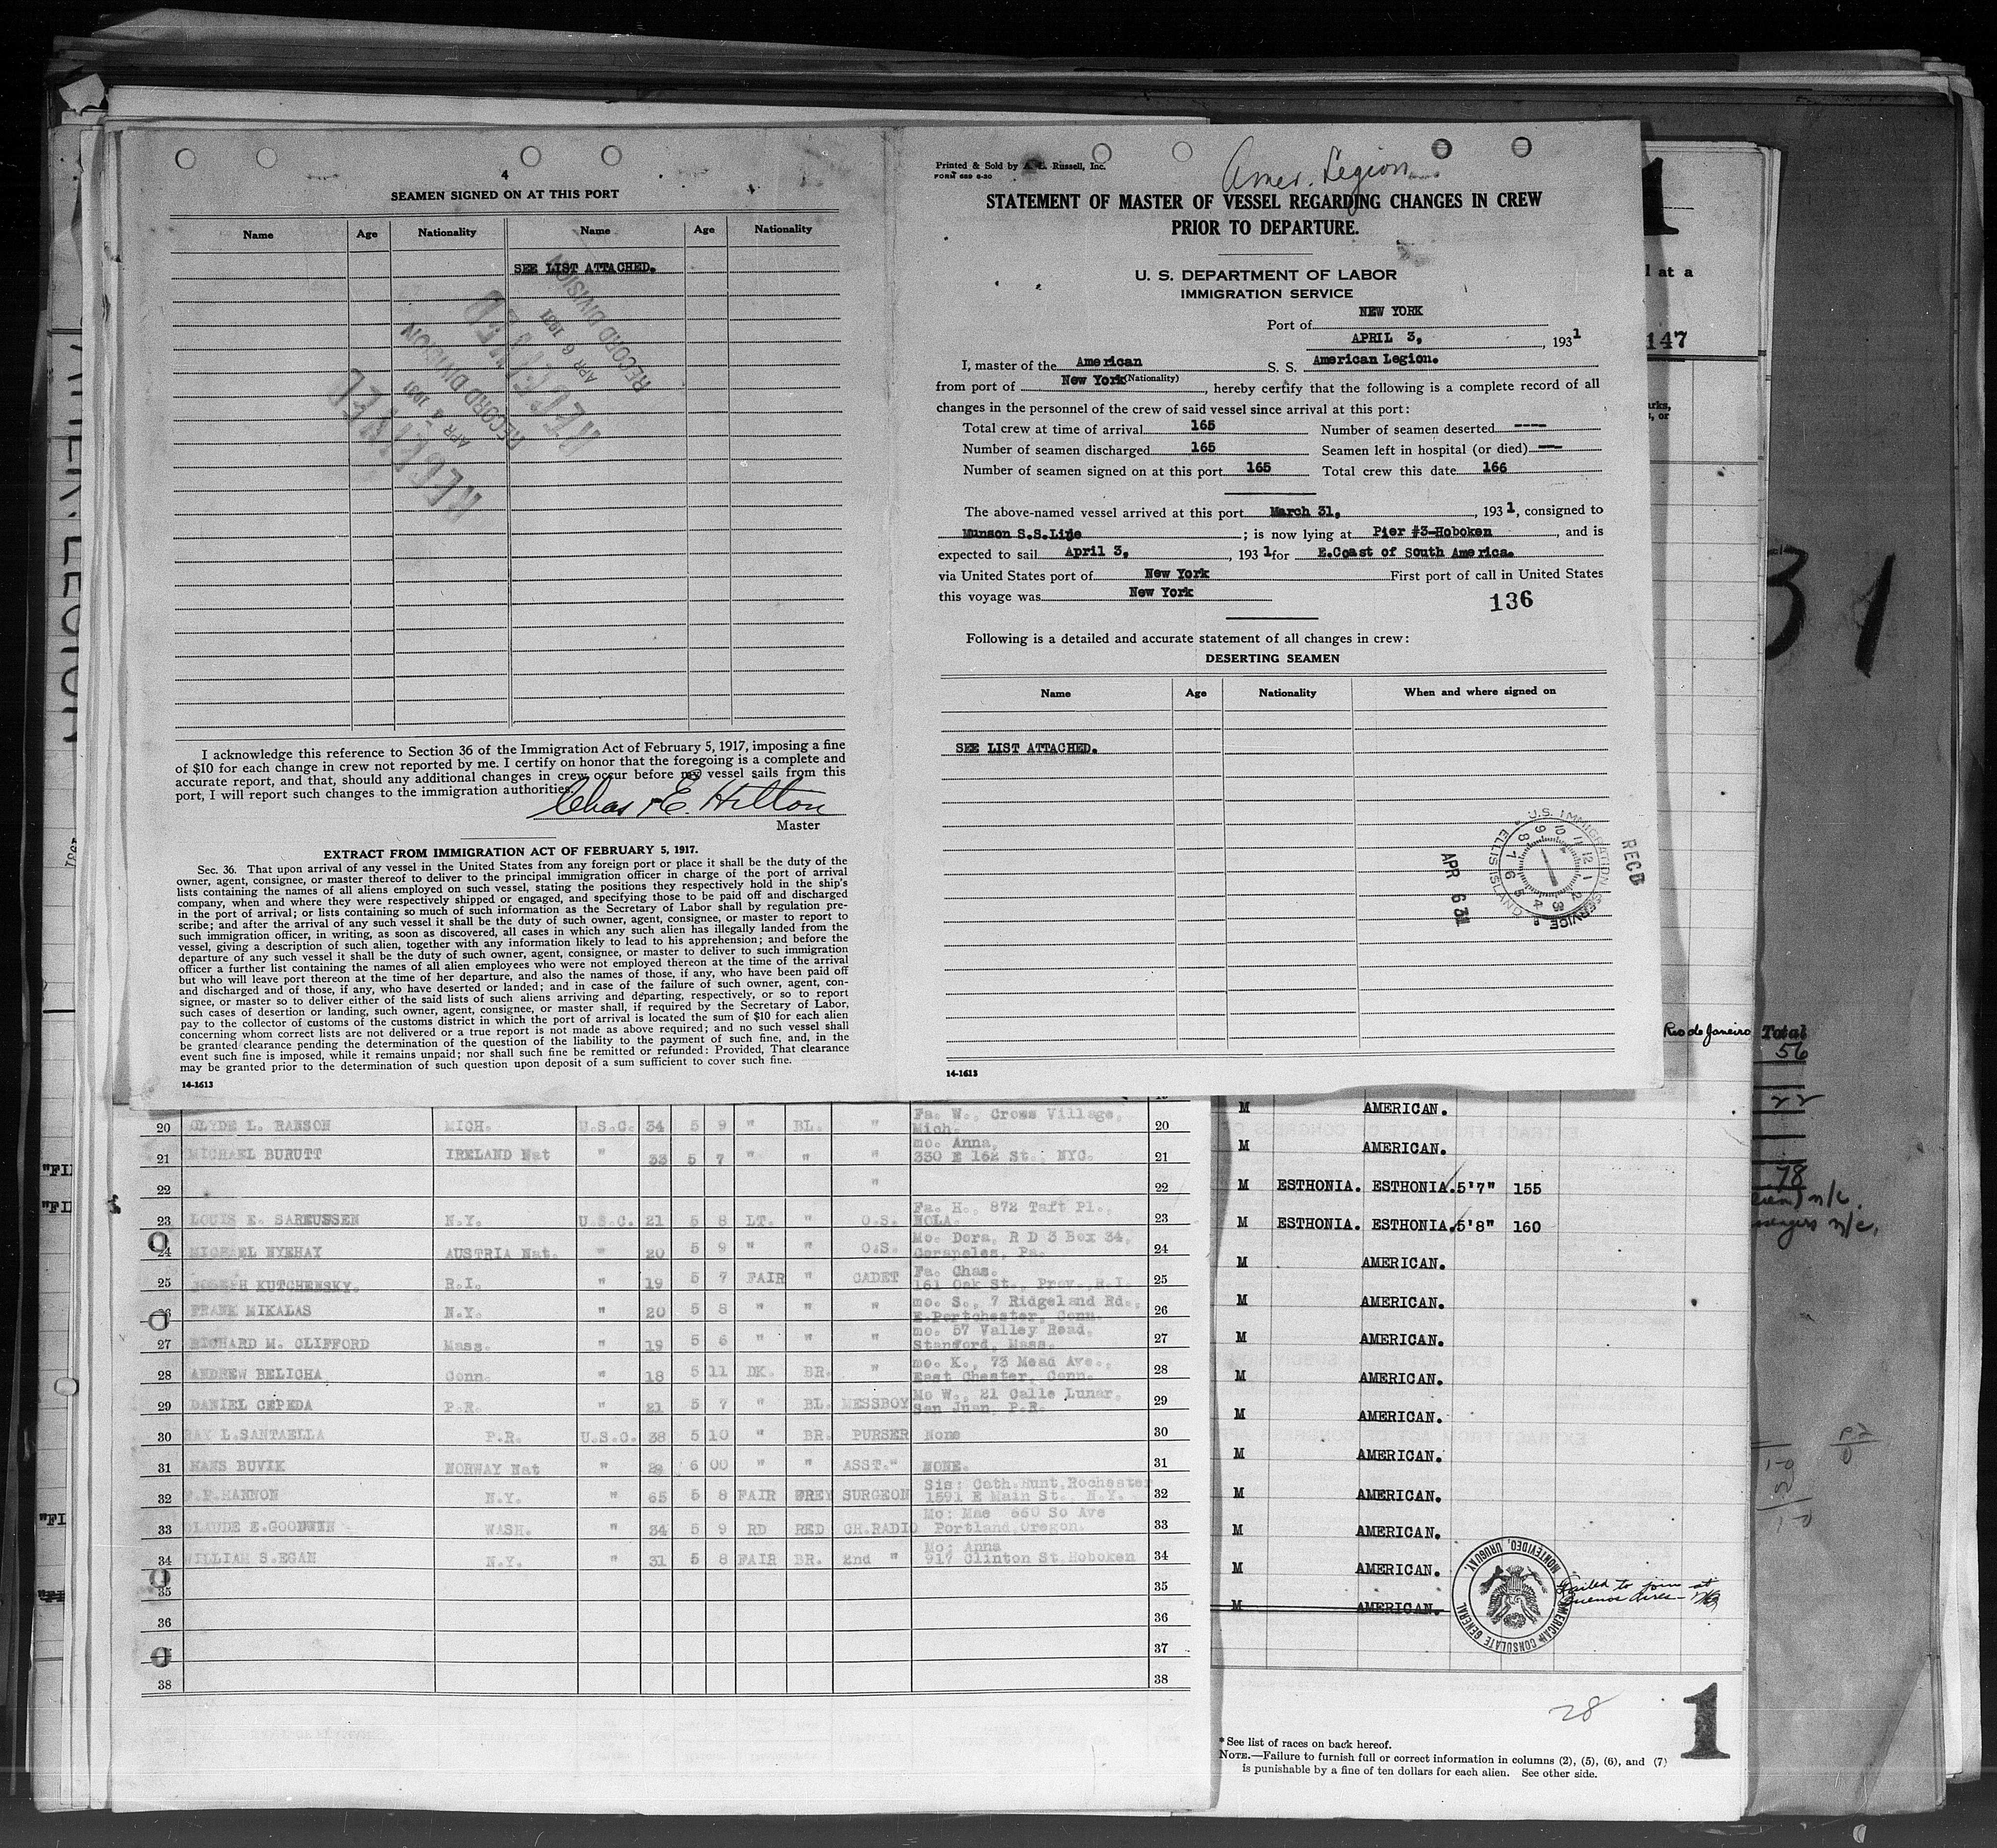 4
SEAMEN SIGNED ON AT THIS PORT
Name Age Nationality Name Age Nationality
SEE LIST ATTACHED.
RECEIVED
APR 4 1931
RECORD DIVISION
RECEIVED
APR 6 1931
RECORD DIVISION
I acknowledge this reference to Section 36 of the Immigration Act of February 5, 1917, imposing a fine
of $10 for each change in crew not reported by me. I certify on honor that the foregoing is a complete and
accurate report, and that, should any additional changes in crew occur before my vessel sails from this
port, I will report such changes to the immigration authorities.
Chas E. Hilton
Master
EXTRACT FROM IMMIGRATION ACT OF FEBRUARY 5, 1917.
Sec. 36. That upon arrival of any vessel in the United States from any foreign port or place it shall be the duty of the
owner, agent, consignee, or master thereof to deliver to the principal immigration officer in charge of the port of arrival
lists containing the names of all aliens employed on such vessel, stating the positions they respectively hold in the ship's
company, when and where they were respectively shipped or engaged, and specifying those to be paid off and discharged
in the port of arrival; or lists containing so much of such information as the Secretary of Labor shall by regulation pre-
scribe; and after the arrival of any such vessel it shall be the duty of such owner, agent, consignee, or master to report to
such immigration officer, in writing, as soon as discovered, all cases in which any such alien has illegally landed from the
vessel, giving a description of such alien, together with any information likely to lead to his apprehension; and before the
departure of any such vessel it shall be the duty of such owner, agent, consignee, or master to deliver to such immigration
officer a further list containing the names of all alien employees who were not employed thereon at the time of the arrival
but who will leave port thereon at the time of her departure, and also the names of those, if any, who have been paid off
and discharged and of those, if any, who have deserted or landed; and in case of the failure of such owner, agent, con-
signee, or master so to deliver either of the said lists of such aliens arriving and departing, respectively, or so to report
such cases of desertion or landing, such owner, agent, consignee, or master shall, if required by the Secretary of Labor,
pay to the collector of customs of the customs district in which the port of arrival is located the sum of $10 for each alien
concerning whom correct lists are not delivered or a true report is not made as above required; and no such vessel shall
be granted clearance pending the determination of the question of the liability to the payment of such fine, and, in the
event such fine is imposed, while it remains unpaid; nor shall such fine be remitted or refunded: Provided, That clearance
may be granted prior to the determination of such question upon deposit of a sum sufficient to cover such fine.
14-1613
Printed & Sold by A. C. Russell, Inc.
FORM 689 6-30
Amer. Legion
STATEMENT OF MASTER OF VESSEL REGARDING CHANGES IN CREW
PRIOR TO DEPARTURE.
U. S. DEPARTMENT OF LABOR
IMMIGRATION SERVICE
Port of NEW YORK
APRIL 3, , 1931
I, master of the American S. S. American Legion.
(Nationality)
from port of New York , hereby certify that the following is a complete record of all
changes in the personnel of the crew of said vessel since arrival at this port:
Total crew at time of arrival 165 Number of seamen deserted ----
Number of seamen discharged 165 Seamen left in hospital (or died) ---
Number of seamen signed on at this port 165 Total crew this date 166
The above-named vessel arrived at this port March 31, , 1931, consigned to
Munson S.S.Line ; is now lying at Pier #3-Hoboken , and is
expected to sail April 3, , 1931 for E.Coast of South America.
via United States port of New York First port of call in United States
this voyage was New York
136
Following is a detailed and accurate statement of all changes in crew:
DESERTING SEAMEN
Name Age Nationality When and where signed on
SEE LIST ATTACHED.
RECD
U.S. IMMIGRATION SERVICE
ELLIS ISLAND
APR 6 31
14-1613
l at a
147
31
Rio de Janeiro Total
56
22
78
Fa. W., Cross Village,
20 CLYDE L. RANSON MICH. U.S.C. 34 5 9 " BL. " Mich. 20
mo. Anna,
21 MICHAEL BURUTT IRELAND Nat " 33 5 7 " " " 330 E 162 St., NYC. 21
22 " 22
Fa. H., 872 Taft Pl.,
23 LOUIS E. SAREUSSEN N.Y. U.S.C. 21 5 8 LT. " O.S. NOLA. 23
Mo. Dora, R D 3 Box 34,
24 MICHAEL NYEHAY AUSTRIA Nat. " 20 5 9 " " O.S. Corapoles, Pa. 24
Fa. Chas.
25 JOSEPH KUTCHENSKY. R.I. " 19 5 7 FAIR " CADET 161 Oak St., Prov. R.I. 25
mo. S., 7 Ridgeland Rd.,
26 FRANK MIKALAS N.Y. " 20 5 8 " " " E.Portchester, Conn. 26
mo. 57 Valley Road,
27 RICHARD M. CLIFFORD Mass. " 19 5 6 " " " Stanford, Mass. 27
mo. K., 73 Mead Ave.,
28 ANDREW BELICHA Conn. " 18 5 11 DK. BR. " East Chester, Conn. 28
Mo W., 21 Calle Lunar,
29 DANIEL CEPEDA P.R. " 21 5 7 " BL. MESSBOY San Juan, P.R. 29
30 RAY L.SANTAELLA P.R. U.S.C. 38 5 10 " BR. PURSER None 30
31 HANS BUVIK NORWAY Nat " 29 6 00 " " ASST." NONE. 31
Sis: Cath.Hunt,Rochester
32 F.F.HANNON N.Y. " 65 5 8 FAIR GREY SURGEON 1591 E Main St., N.Y. 32
Mo: Mae 660 So Ave
33 CLAUDE E.GOODWIN WASH. " 34 5 9 RD RED CH.RADIO Portland,Oregon. 33
Mo: Anna
34 WILLIAM S.EGAN N.Y. " 31 5 8 FAIR BR. 2nd " 917 Clinton St.Hoboken 34
35 35
36 36
37
38 38
M AMERICAN.
M AMERICAN.
M ESTHONIA. ESTHONIA. 5'7" 155
M ESTHONIA. ESTHONIA. 5'8" 160
M AMERICAN.
M AMERICAN.
M AMERICAN.
M AMERICAN.
M AMERICAN.
M AMERICAN.
M AMERICAN.
M AMERICAN.
M AMERICAN.
M AMERICAN.
AMERICAN CONSULATE GENERAL
MONTEVIDEO, URUGUAY.
Failed to join at
Buenos Aires
28
1
* See list of races on back hereof.
NOTE.—Failure to furnish full or correct information in columns (2), (5), (6), and (7)
is punishable by a fine of ten dollars for each alien. See other side.